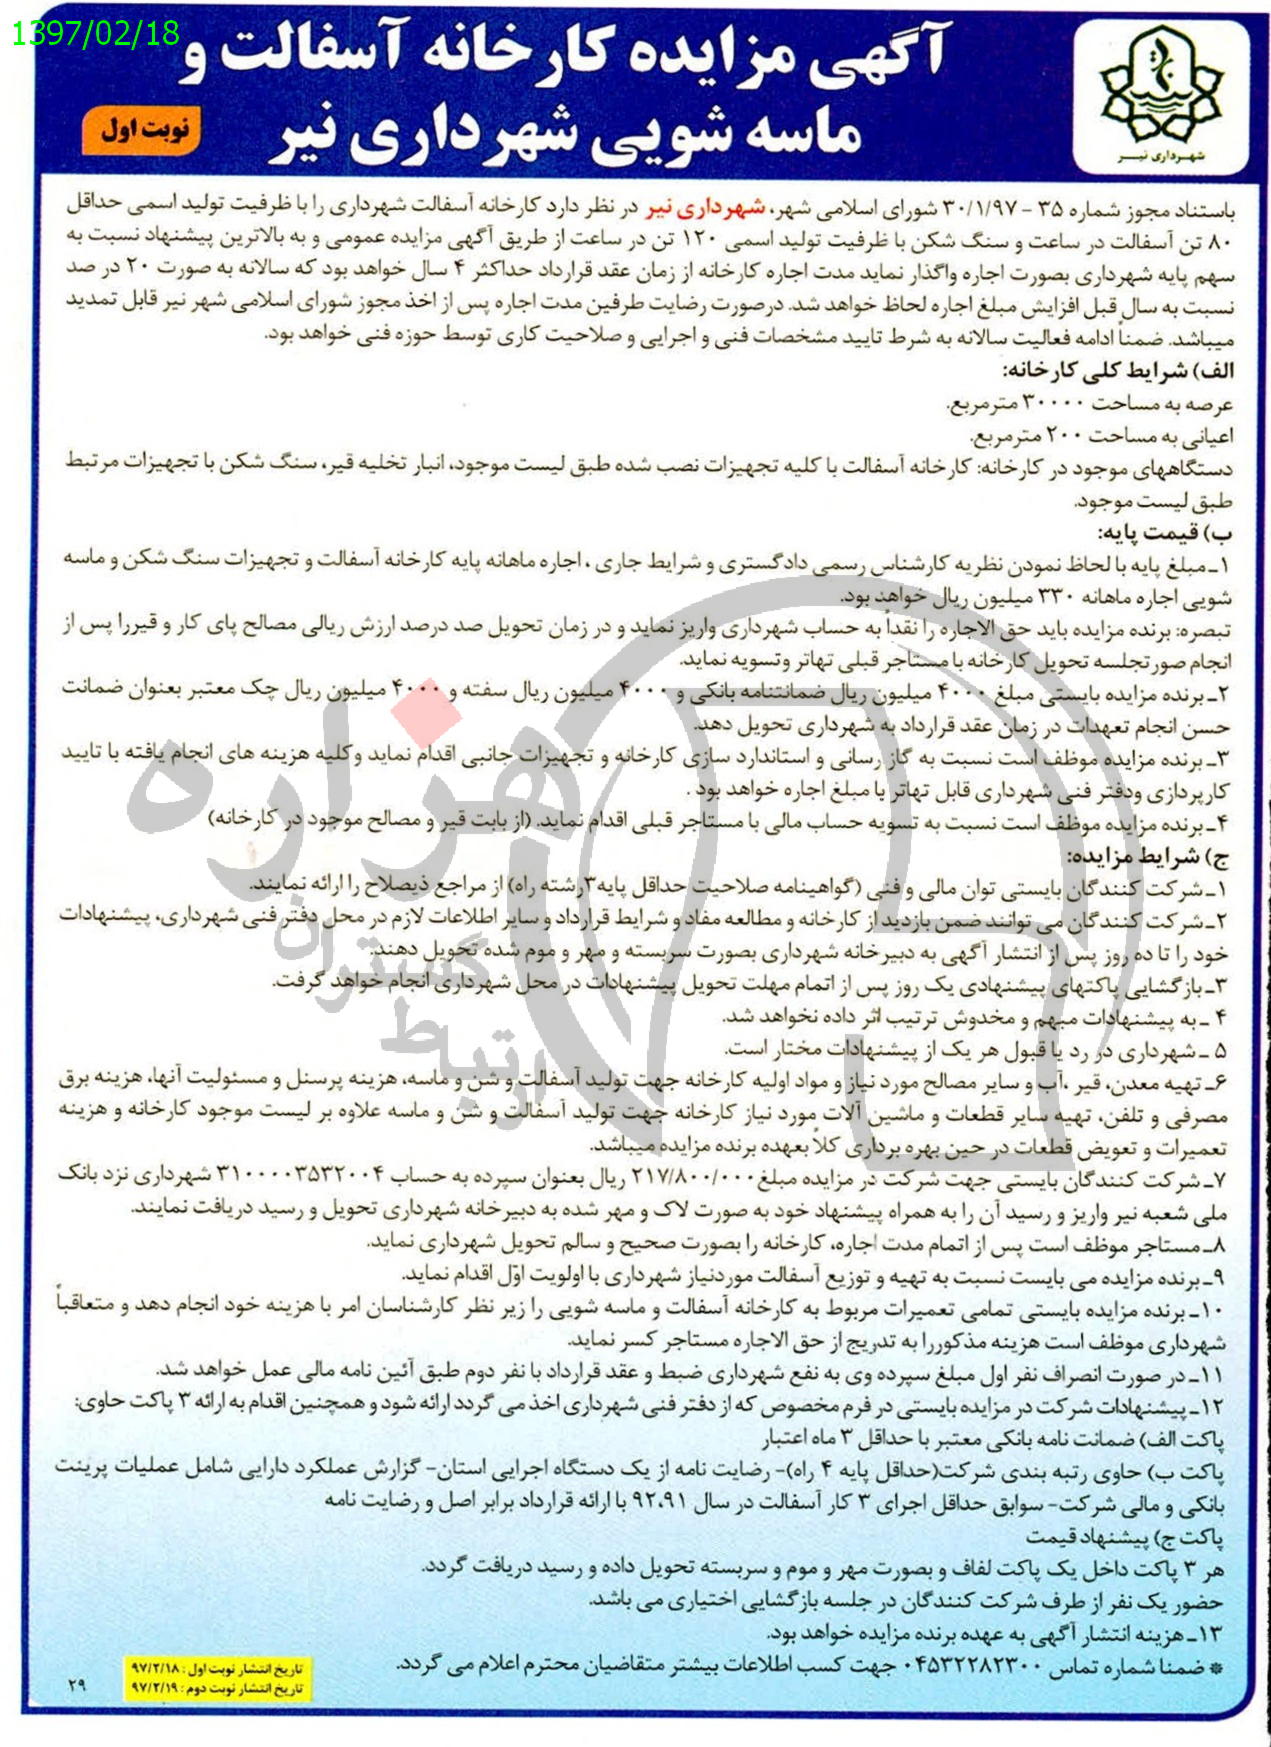 1397/02/18
آگهی مزایده کارخانه آسفالت و
ماسه شویی شهرداری نیر
نوبت اول
شهرداری نیر
باستناد مجوز شماره ۳۵ - ۳۰/۱/۹۷ شورای اسلامی شهر، شهرداری نیر در نظر دارد کارخانه آسفالت شهرداری را با ظرفیت تولید اسمی حداقل
۸۰ تن آسفالت در ساعت و سنگ شکن با ظرفیت تولید اسمی ۱۲۰ تن در ساعت از طریق آگهی مزایده عمومی و به بالاترین پیشنهاد نسبت به
سهم پایه شهرداری بصورت اجاره واگذار نماید مدت اجاره کارخانه از زمان عقد قرارداد حداکثر ۴ سال خواهد بود که سالانه به صورت ۲۰ در صد
نسبت به سال قبل افزایش مبلغ اجاره لحاظ خواهد شد. درصورت رضایت طرفین مدت اجاره پس از اخذ مجوز شورای اسلامی شهر نیر قابل تمدید
میباشد. ضمناً ادامه فعالیت سالانه به شرط تایید مشخصات فنی و اجرایی و صلاحیت کاری توسط حوزه فنی خواهد بود.
الف) شرایط کلی کارخانه:
عرصه به مساحت ۳۰۰۰۰ مترمربع.
اعیانی به مساحت ۲۰۰ مترمربع.
دستگاههای موجود در کارخانه: کارخانه آسفالت با کلیه تجهیزات نصب شده طبق لیست موجود، انبار تخلیه قیر، سنگ شکن با تجهیزات مرتبط
طبق لیست موجود.
ب) قیمت پایه:
۱ـ مبلغ پایه با لحاظ نمودن نظریه کارشناس رسمی دادگستری و شرایط جاری ، اجاره ماهانه پایه کارخانه آسفالت و تجهیزات سنگ شکن و ماسه
شویی اجاره ماهانه ۳۳۰ میلیون ریال خواهد بود.
تبصره: برنده مزایده باید حق الاجاره را نقداً به حساب شهرداری واریز نماید و در زمان تحویل صد درصد ارزش ریالی مصالح پای کار و قیررا پس از
انجام صورتجلسه تحویل کارخانه با مستاجر قبلی تهاتر وتسویه نماید.
۲ـ برنده مزایده بایستی مبلغ ۴۰۰۰ میلیون ریال ضمانتنامه بانکی و ۴۰۰۰ میلیون ریال سفته و ۴۰۰۰ میلیون ریال چک معتبر بعنوان ضمانت
حسن انجام تعهدات در زمان عقد قرارداد به شهرداری تحویل دهد.
۳ـ برنده مزایده موظف است نسبت به گاز رسانی و استاندارد سازی کارخانه و تجهیزات جانبی اقدام نماید وکلیه هزینه های انجام یافته با تایید
کارپردازی ودفتر فنی شهرداری قابل تهاتر با مبلغ اجاره خواهد بود .
۴ـ برنده مزایده موظف است نسبت به تسویه حساب مالی با مستاجر قبلی اقدام نماید. (از بابت قیر و مصالح موجود در کارخانه)
ج) شرایط مزایده:
۱ـ شرکت کنندگان بایستی توان مالی و فنی (گواهینامه صلاحیت حداقل پایه۳رشته راه) از مراجع ذیصلاح را ارائه نمایند.
۲ـ شرکت کنندگان می توانند ضمن بازدید از کارخانه و مطالعه مفاد و شرایط قرارداد و سایر اطلاعات لازم در محل دفتر فنی شهرداری، پیشنهادات
خود را تا ده روز پس از انتشار آگهی به دبیرخانه شهرداری بصورت سربسته و مهر و موم شده تحویل دهند.
۳ـ بازگشایی پاکتهای پیشنهادی یک روز پس از اتمام مهلت تحویل پیشنهادات در محل شهرداری انجام خواهد گرفت.
۴ ـ به پیشنهادات مبهم و مخدوش ترتیب اثر داده نخواهد شد.
۵ ـ شهرداری در رد یا قبول هر یک از پیشنهادات مختار است.
۶ـ تهیه معدن، قیر ،آب و سایر مصالح مورد نیاز و مواد اولیه کارخانه جهت تولید آسفالت و شن و ماسه، هزینه پرسنل و مسئولیت آنها، هزینه برق
مصرفی و تلفن، تهیه سایر قطعات و ماشین آلات مورد نیاز کارخانه جهت تولید آسفالت و شن و ماسه علاوه بر لیست موجود کارخانه و هزینه
تعمیرات و تعویض قطعات در حین بهره برداری کلاً بعهده برنده مزایده میباشد.
۷ـ شرکت کنندگان بایستی جهت شرکت در مزایده مبلغ ۲۱۷/۸۰۰/۰۰۰ ریال بعنوان سپرده به حساب ۳۱۰۰۰۰۳۵۳۲۰۰۴ شهرداری نزد بانک
ملی شعبه نیر واریز و رسید آن را به همراه پیشنهاد خود به صورت لاک و مهر شده به دبیرخانه شهرداری تحویل و رسید دریافت نمایند.
۸ـ مستاجر موظف است پس از اتمام مدت اجاره، کارخانه را بصورت صحیح و سالم تحویل شهرداری نماید.
۹ـ برنده مزایده می بایست نسبت به تهیه و توزیع آسفالت موردنیاز شهرداری با اولویت اوّل اقدام نماید.
۱۰ـ برنده مزایده بایستی تمامی تعمیرات مربوط به کارخانه آسفالت و ماسه شویی را زیر نظر کارشناسان امر با هزینه خود انجام دهد و متعاقباً
شهرداری موظف است هزینه مذکوررا به تدریج از حق الاجاره مستاجر کسر نماید.
۱۱ـ در صورت انصراف نفر اول مبلغ سپرده وی به نفع شهرداری ضبط و عقد قرارداد با نفر دوم طبق آئین نامه مالی عمل خواهد شد.
۱۲ـ پیشنهادات شرکت در مزایده بایستی در فرم مخصوص که از دفتر فنی شهرداری اخذ می گردد ارائه شود و همچنین اقدام به ارائه ۳ پاکت حاوی:
پاکت الف) ضمانت نامه بانکی معتبر با حداقل ۳ ماه اعتبار
پاکت ب) حاوی رتبه بندی شرکت(حداقل پایه ۴ راه)- رضایت نامه از یک دستگاه اجرایی استان- گزارش عملکرد دارایی شامل عملیات پرینت
بانکی و مالی شرکت- سوابق حداقل اجرای ۳ کار آسفالت در سال ۹۲،۹۱ با ارائه قرارداد برابر اصل و رضایت نامه
پاکت ج) پیشنهاد قیمت
هر ۳ پاکت داخل یک پاکت لفاف و بصورت مهر و موم و سربسته تحویل داده و رسید دریافت گردد.
حضور یک نفر از طرف شرکت کنندگان در جلسه بازگشایی اختیاری می باشد.
۱۳ـ هزینه انتشار آگهی به عهده برنده مزایده خواهد بود.
* ضمنا شماره تماس ۰۴۵۳۲۲۸۲۳۰۰ جهت کسب اطلاعات بیشتر متقاضیان محترم اعلام می گردد.
تاریخ انتشار نوبت اول : ۹۷/۲/۱۸
تاریخ انتشار نوبت دوم : ۹۷/۲/۱۹
۲۹
هزاره
گستران
ارتباط